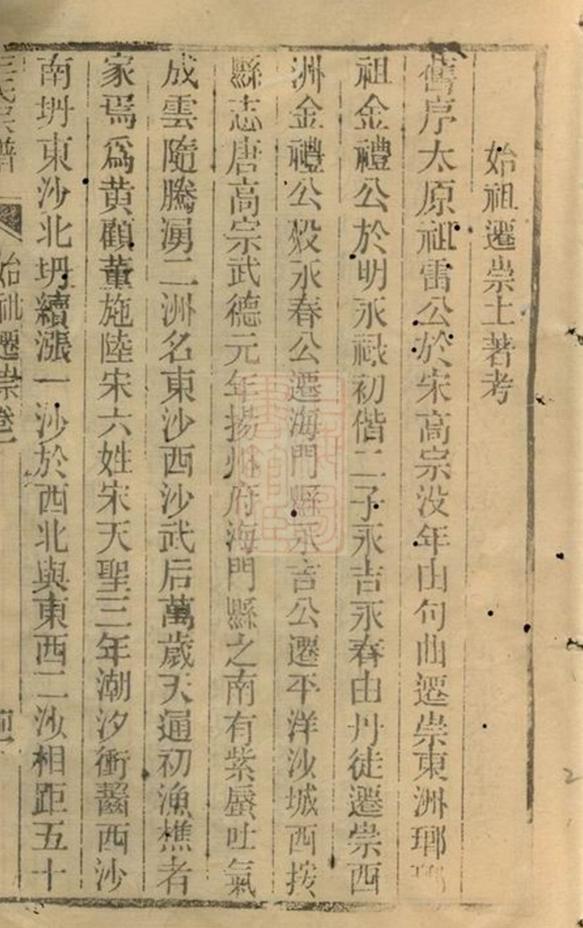 始祖遷崇土著考
舊序太原祖雷公於宋高宗没年由句曲遷崇東洲瑯琊
祖金禮公於明永祿初偕二子永吉永春由丹徒遷崇西
洲金禮公殁永春公遷海門縣永吉公遷平洋沙城西按
縣志唐高宗武德元年揚州府海門縣之南有紫蜃吐氣
成雲隨騰湧二洲名東沙西沙武后萬歲天通初漁樵者
家焉爲黄顧董施陸宋六姓宋天聖三年潮汐衝齧西沙
南坍東沙北坍續漲一沙於西北與東西二沙相距五十
王氏宗譜 始祖遷崇 卷一